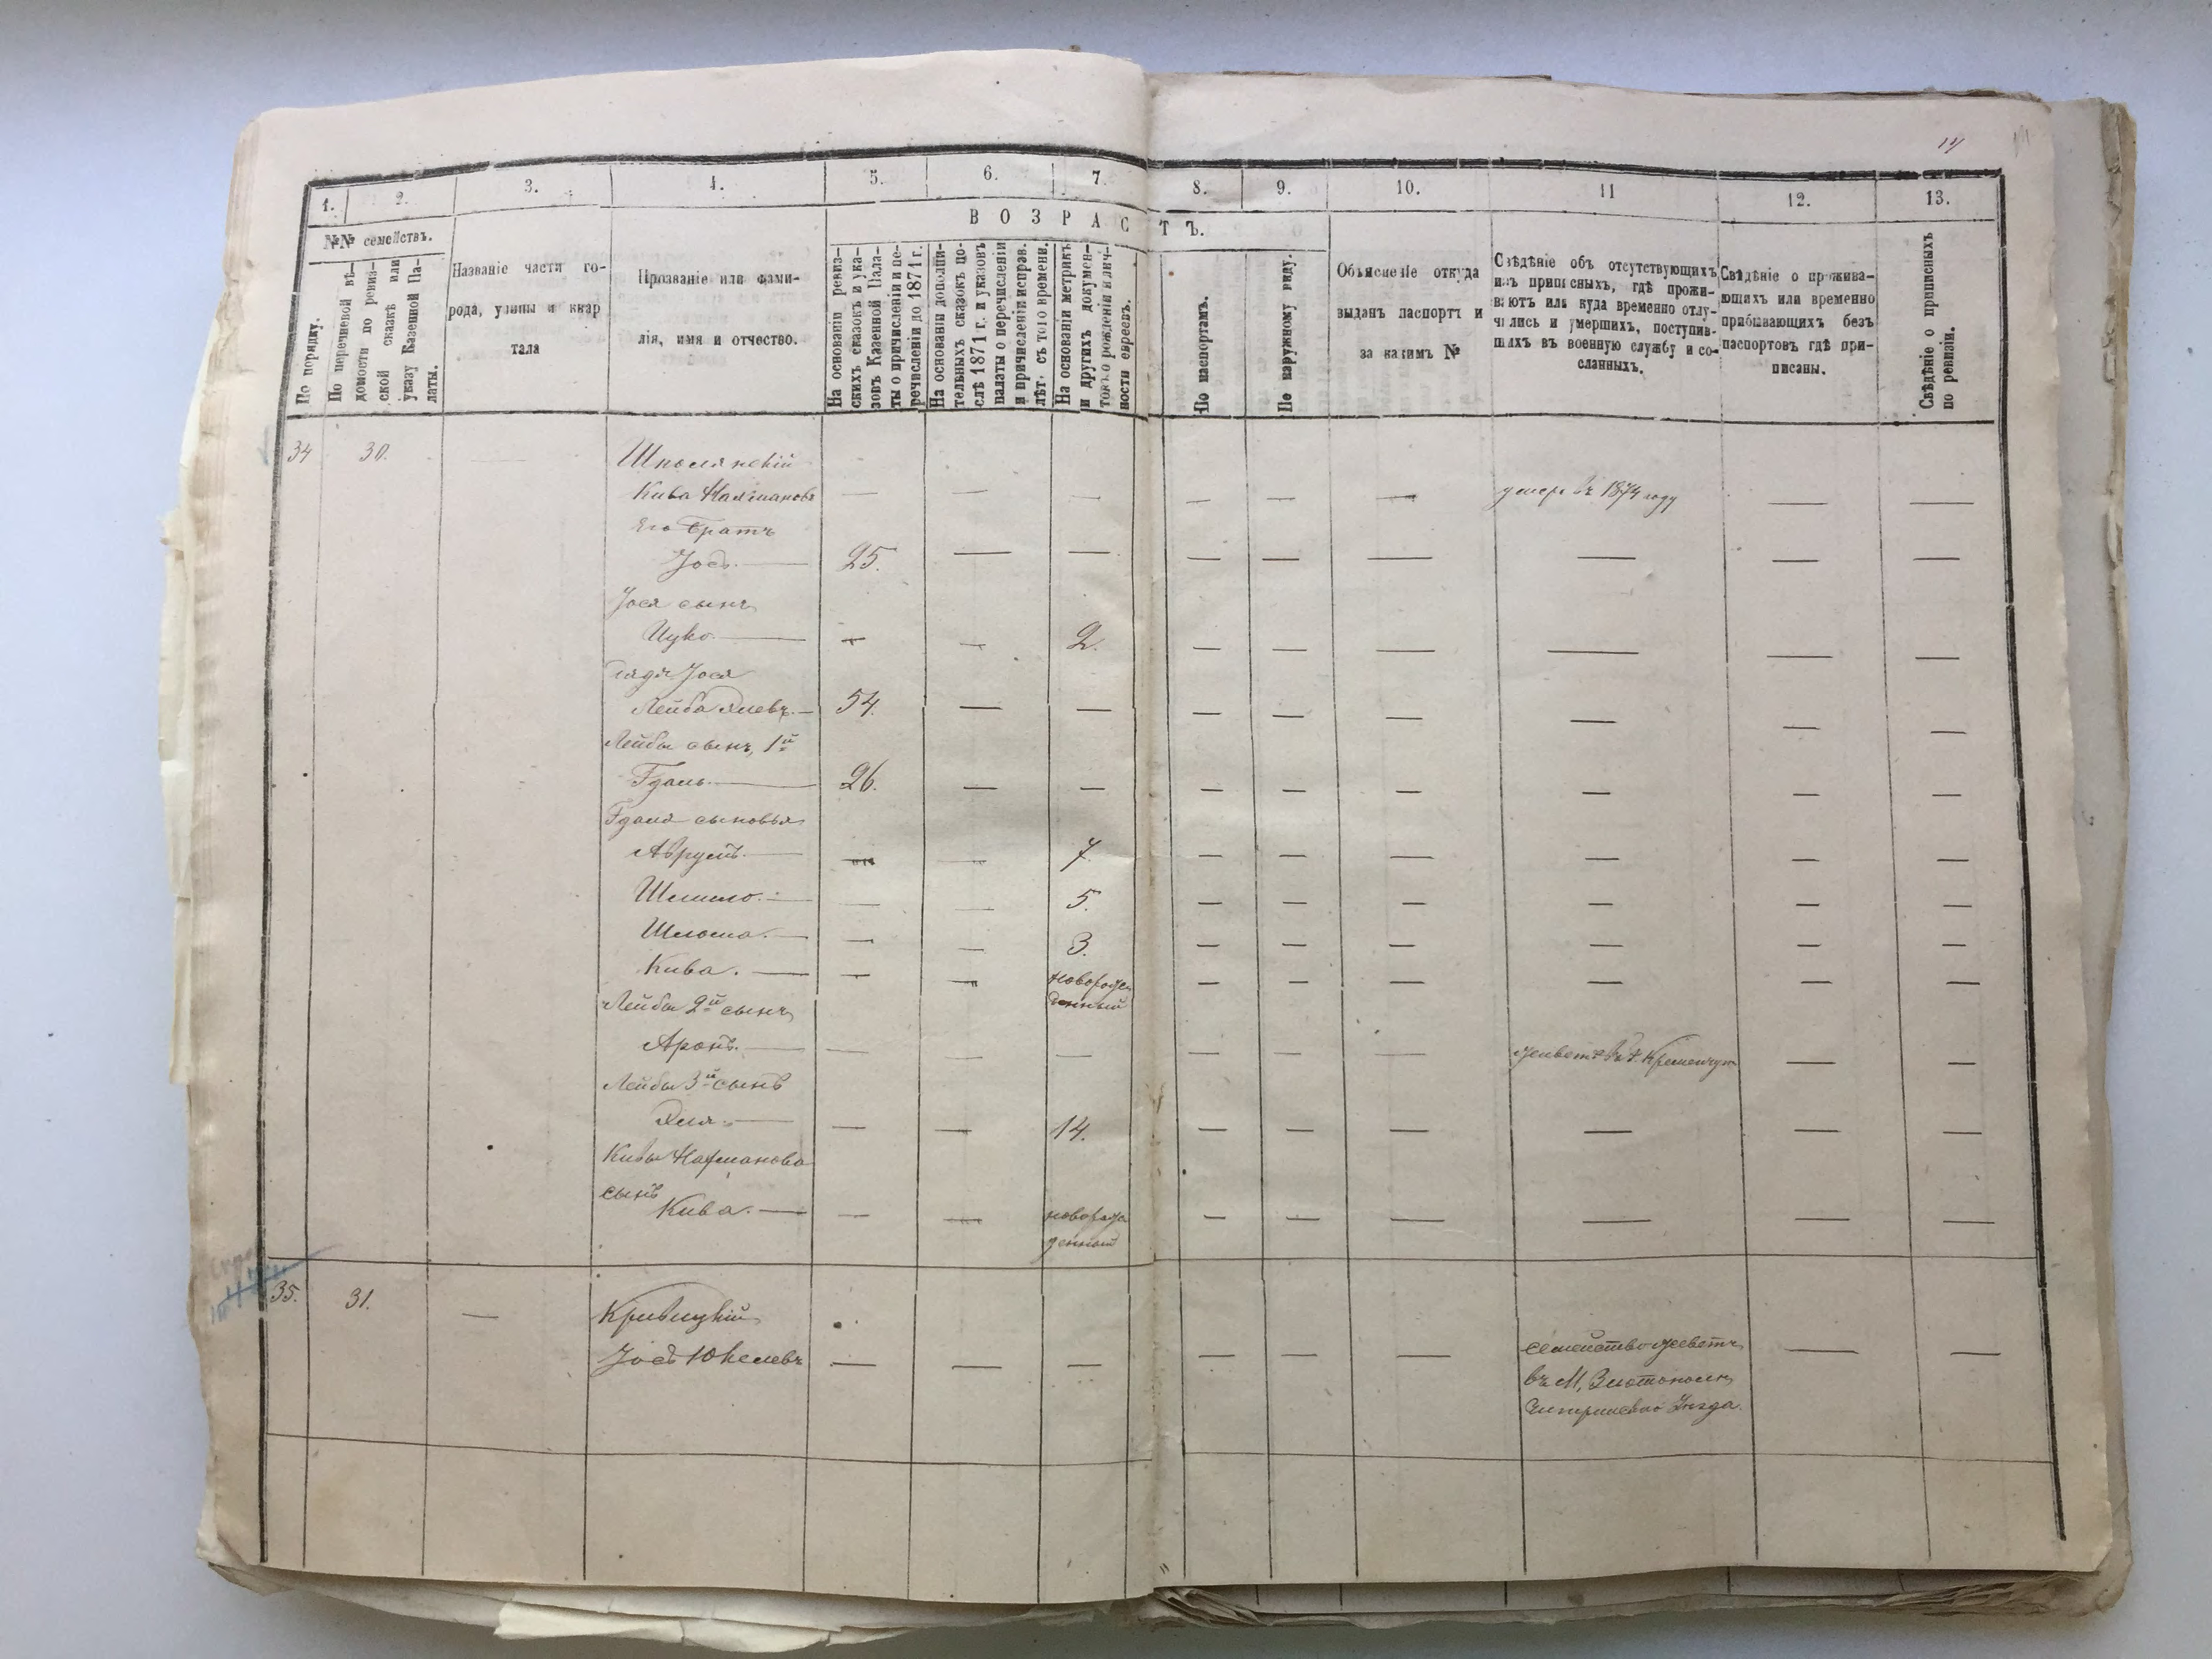 14
1. 2. 3. 4. 5. 6. 7. 8. 9. 10. 11 12. 13.
№№ семействъ.
В О З Р А С Т Ъ.
По порядку.
По перечневой вѣ-
домости по ревиз-
ской сказкѣ или
указу Казенной Па-
латы.
Названіе части го-
рода, улицы и квар
тала
Прозваніе или фами-
лія, имя и отчество.
На основаніи ревиз-
скихъ сказокъ и ука-
зовъ Казенной Пала-
ты о причисленіи и пе-
речисленіи до 1871 г.
На основаніи дополни-
тельныхъ сказокъ по-
слѣ 1871 г. и указовъ
палаты о перечисленіи
и причисленіи исправ.
лѣт. съ того времени.
На основаніи метрикъ
и другихъ докумен-
товъ о рожденіи и лич-
ности евреевъ.
По паспортамъ.
По наружному виду.
Объясненіе откуда
выданъ паспортъ и
за какимъ №
Свѣдѣніе объ отсутствующихъ
изъ приписныхъ, гдѣ прожи-
ваютъ или куда временно отлу-
чились и умершихъ, поступив-
шихъ въ военную службу и со-
сланныхъ.
Свѣдѣніе о прожива-
ющихъ или временно
прибывающихъ безъ
паспортовъ гдѣ при-
писаны.
Свѣдѣніе о приписныхъ
по ревизіи.
34 30. — Шполянскій
Кива Нахмановъ — — — — — — умеръ въ 1874 году — —
Его братъ
Іось — 25. — — — — — — — —
Іося сынъ
Ицко — — — 2. — — — — — —
дядя Іося
Лейба Элевъ — 54. — — — — — — — —
Лейбы сынъ 1й
Гдаль — 26. — — — — — — — —
Гдаля сыновья
Аврумъ — — — 7. — — — — — —
Шмилo. — — — 5. — — — — — —
Шлома. — — — 3. — — — — — —
Кива. — — — новорож
денный — — — — — —
Лейбы 2й сынъ
Аронъ. — — — — — — — живетъ въ г. Кременчугѣ — —
Лейбы 3й сынъ
Эля — — — 14. — — — — — —
Кивы Нахманова
сынъ
Кива. — — — новорож
денный — — — — — —
35. 31. — Кривицкій
Іось Юкелевъ — — — — — — семейство живетъ — —
въ М. Златополѣ
Чигиринскаго Уѣзда.